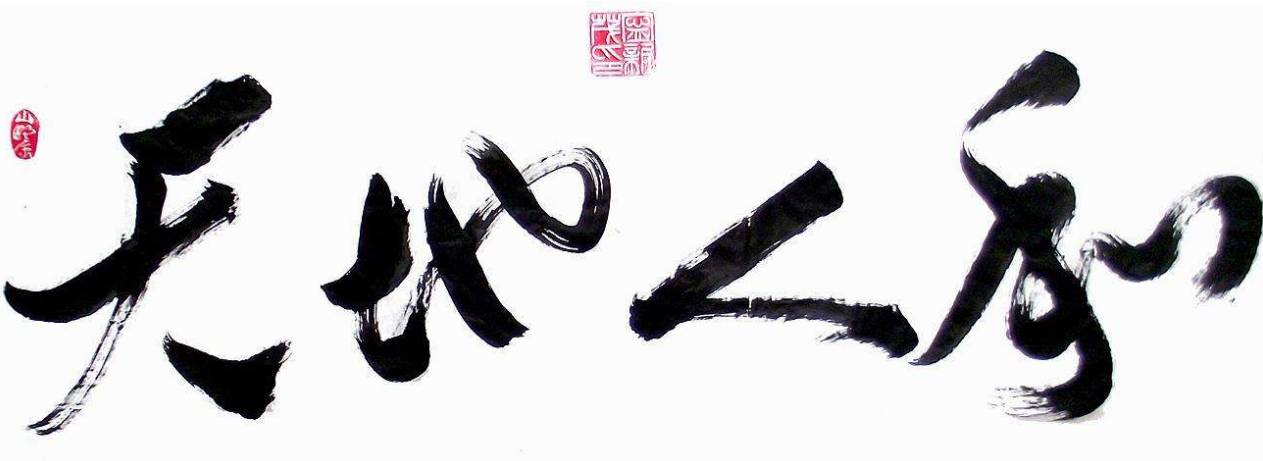 天地人和